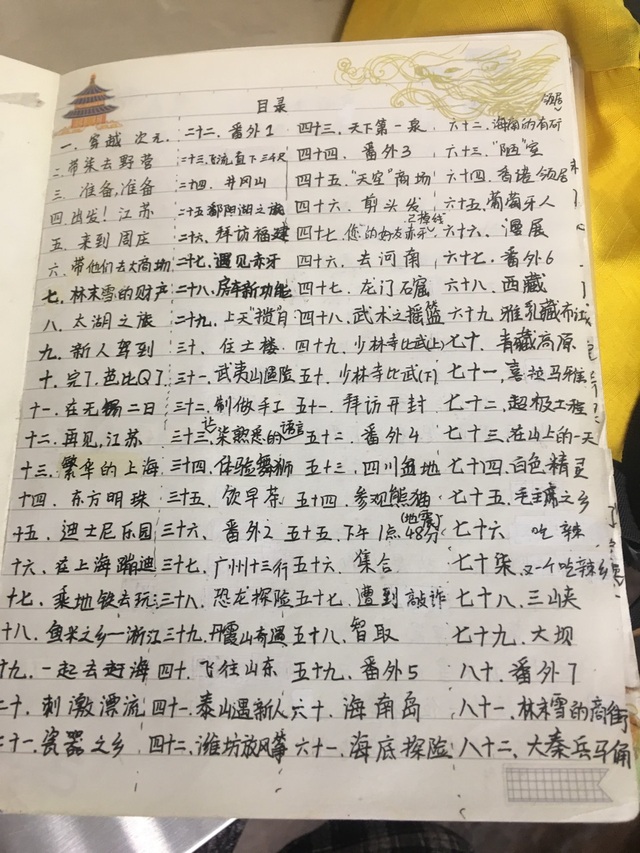 目录
一、穿越 次元.
二.带柒去野营
三.准备,准备
四.出发！江苏
五.来到周庄
六.带他们去大商场
七.林末雪的财产
八.太湖之旅
九.新人驾到
十.完了,芭比Q了
十一.在无锡二日
十二.再见,江苏
十三.繁华的上海
十四.东方明珠
十五.迪士尼乐园
十六.在上海蹦迪
十七.乘地铁去玩
十八.鱼米之乡一浙江
十九.一起去赶海
二十.刺激漂流
二十一.瓷器之乡
二十二.番外1
二十三.飞流直下三千尺
二十四.井冈山
二十五鄱阳湖之旅
二十六.拜访福建
二十七.遇见赤牙
二十八.房车新功能
二十九.上天"揽"月
三十.住土楼
三十一.武夷山遇险
三十二.制做手工
三十三.让柒熟悉的语言
三十四.体验舞狮
三十五.饮早茶
三十六.番外2
三十七.广州十三行
三十八.恐龙探险
三十九.丹霞山奇遇
四十.飞往山东
四十一.泰山遇新人
四十二.潍坊放风筝
四十三.天下第一泉
四十四.番外3
四十五."天空"商场
四十六.剪头发
四十七.您的好友赤牙已接线
四十六.去河南
四十七.龙门石窟
四十八.武术之摇篮
四十九.少林寺比武(上)
五十.少林寺比武(下)
五十一.拜访开封
五十二.番外4
五十三.四川盆地
五十四.参观熊猫
五十五.下午1点48分(地震)
五十六.集合
五十七.遭到敲诈
五十八.智取
五十九.番外5
六十.海南岛
六十一.海底探险
六十二.海南的有矿
六十三."陋"室
六十四.香港领居
六十五.葡萄牙人
六十六.漫展
六十七.番外6
六十八.西藏
六十九.雅乳藏布江
七十.青藏高原
七十一.喜拉马雅
七十二.超极工程
七十三.在山上的一天
七十四.白色精灵
七十五.毛主席之乡
七十六 吃辣
七十柒.又一个吃辣乡
七十八.三山峡
七十九.大坝
八十.番外7
八十一.林末雪的商街
八十二.大秦兵马俑